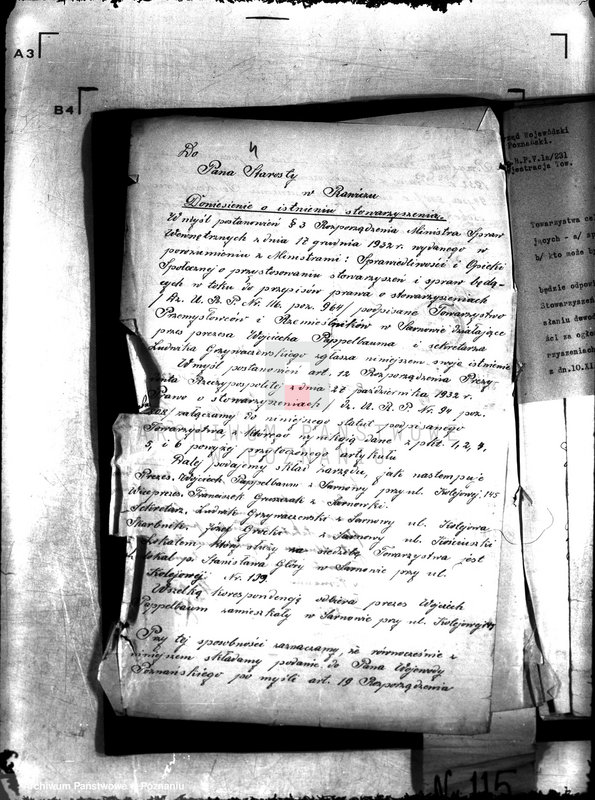 A3
B4
4
Do
Pana Starosty
w Rawiczu
Doniesienie o istnieniu stowarzyszenia.
W myśl postanowień § 3 Rozporządzenia Ministra Spraw
Wewnętrznych z dnia 17 grudnia 1932 r. wydanego w
porozumieniu z Ministrami: Sprawiedliwości i Opieki
Społecznej o przystosowaniu stowarzyszeń i spraw będą-
cych w toku do przepisów prawa o stowarzyszeniach
/ Dz. U. R. P. Nr. 116. poz. 964/ podpisane Towarzystwo
Przemysłowców i Rzemieślników w Sarnowie działające
przez prezesa Wojciecha Pappelbauma i sekretarza
Ludwika Grzynaczewskiego zgłasza niniejszem swoje istnienie
W myśl postanowień art. 12 Rozporządzenia Prezy-
denta Rzeczypospolitej z dnia 27 października 1932 r.
Prawo o stowarzyszeniach / Dz. U. R. P. Nr. 94 poz.
808/ załączamy do niniejszego statut podpisanego
Towarzystwa z którego wynikają dane z pkt. 1, 2, 4,
5, i 6 powyżej przytoczonego artykułu
Dalej podajemy skład zarządu, jak następuje
Prezes, Wojciech Pappelbaum z Sarnowy przy ul. Kolejowej 145
Wiceprezes Franciszek Gruszczak z Sarnowki.
Sekretarz, Ludwik Grzynaczewski z Sarnowy ul. Kolejowa
Skarbnik, Józef Grocki z Sarnowy ul. Kościuszki
Lokalem, który służy na siedzibę Towarzystwa jest
lokal p. Stanisława Glury w Sarnowie przy ul.
Kolejowej Nr. 139
Wszelką korespondencję odbiera prezes Wojciech
Pappelbaum zamieszkały w Sarnowie przy ul. Kolejowej
Przy tej sposobności zaznaczamy, że równocześnie z
niniejszem składamy podanie do Pana Wojewody
Poznańskiego po myśli art. 19 Rozporządzenia
Wojewódzki
Poznański.
Towarzystwa
jących - a/
b/ kto może
będzie
Stowarzyszeń
ści za
z dn.10.XI.
ARCHIWUM PAŃSTWOWE
W POZNANIU
Archiwum Państwowe w Poznaniu
No 115